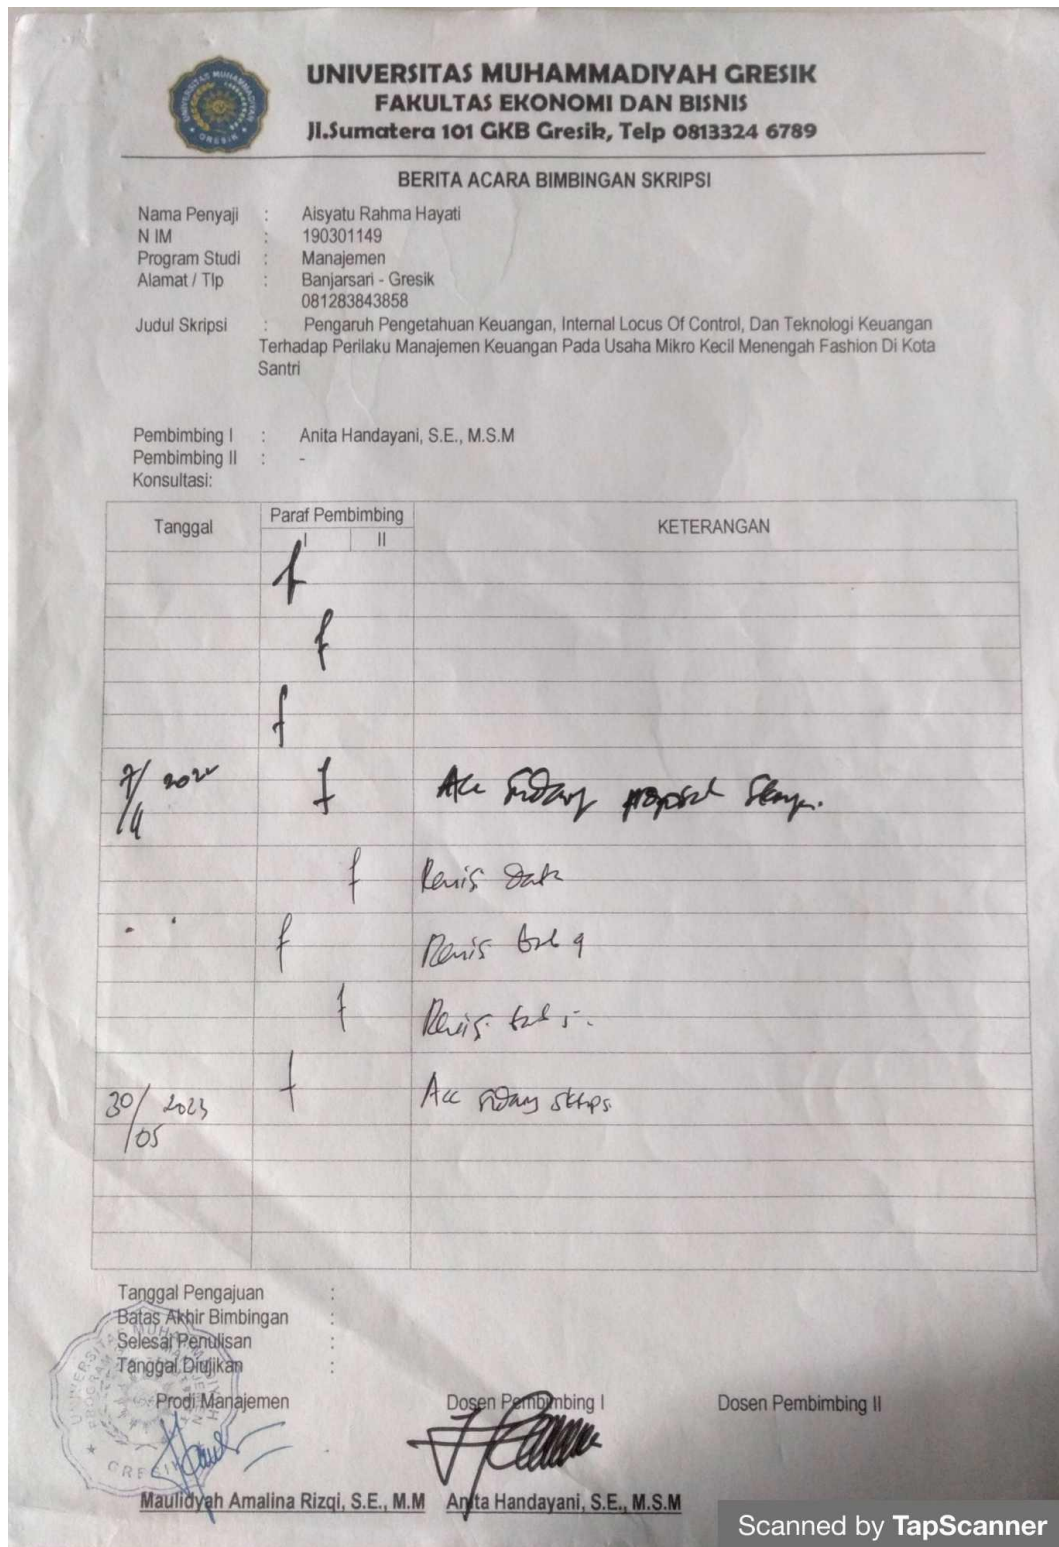 UNIVERSITAS MUHAMMADIYAH GRESIK
FAKULTAS EKONOMI DAN BISNIS
Jl.Sumatera 101 GKB Gresik, Telp 0813324 6789
BERITA ACARA BIMBINGAN SKRIPSI
Nama Penyaji : Aisyatu Rahma Hayati
N IM : 190301149
Program Studi : Manajemen
Alamat / Tlp : Banjarsari - Gresik
081283843858
Judul Skripsi : Pengaruh Pengetahuan Keuangan, Internal Locus Of Control, Dan Teknologi Keuangan
Terhadap Perilaku Manajemen Keuangan Pada Usaha Mikro Kecil Menengah Fashion Di Kota
Santri
Pembimbing I : Anita Handayani, S.E., M.S.M
Pembimbing II : -
Konsultasi:
Tanggal Paraf Pembimbing KETERANGAN
I II
Acc sidang proposal
Revisi Data
Revisi bab
Revisi bab 5.
30/05 2023 Acc sidang skripsi
Tanggal Pengajuan :
Batas Akhir Bimbingan :
Selesai Penulisan :
Tanggal Diujikan :
Prodi Manajemen Dosen Pembimbing I Dosen Pembimbing II
Maulidyah Amalina Rizqi, S.E., M.M Anita Handayani, S.E., M.S.M
Scanned by TapScanner